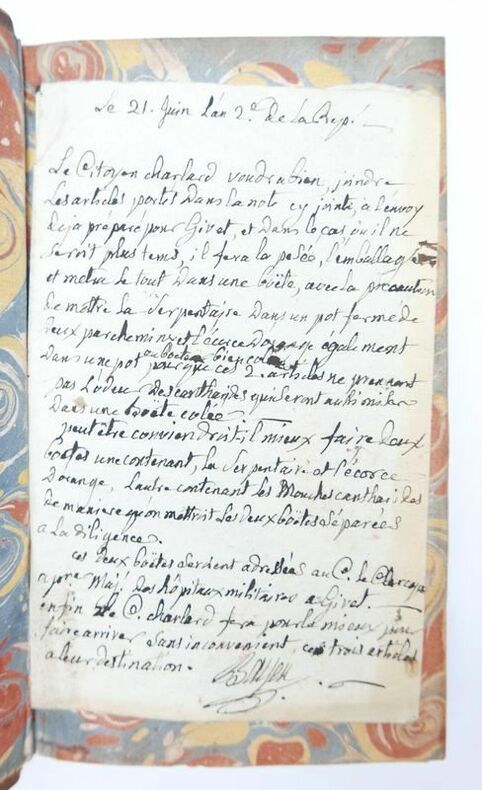 Le 21. Juin L'an 2.e De La Rep.
Le Citoyen charlard voudra bien, joindre
Les articles portés Dans la note cy jointe, a L'envoy
Deja préparé pour Givet, et Dans le cas ou il ne
seroit plus tems, il fera la pesée, l'emballage
et metra Le tout Dans une boëte, avec la precaution
De mettre La Serpentaire Dans un pot fermé De
Deux parchemins et l'écorce D'orange également
Dans une pot ou boete bien pour que ces 2. articles ne prennent
pas L'odeur Des cantharides qui seront aussi mises
Dans une boëte colée.
peut être conviendroit il mieux faire Deux
boëtes une contenant, la Serpentaire et l'écorce
D'orange, L'autre contenant Les Mouches cantharides
De maniere qu'on mettroit Les Deux boëtes séparées
a La diligence.
ces Deux boëtes seroient adressées au C. le Clerc
apre Maj. Des hôpitaux militaires a Givet.
enfin Le C. charlard fera pour le mieux pour
faire arriver Sans inconvenient ces trois articles
a leur Destination.
Bayen